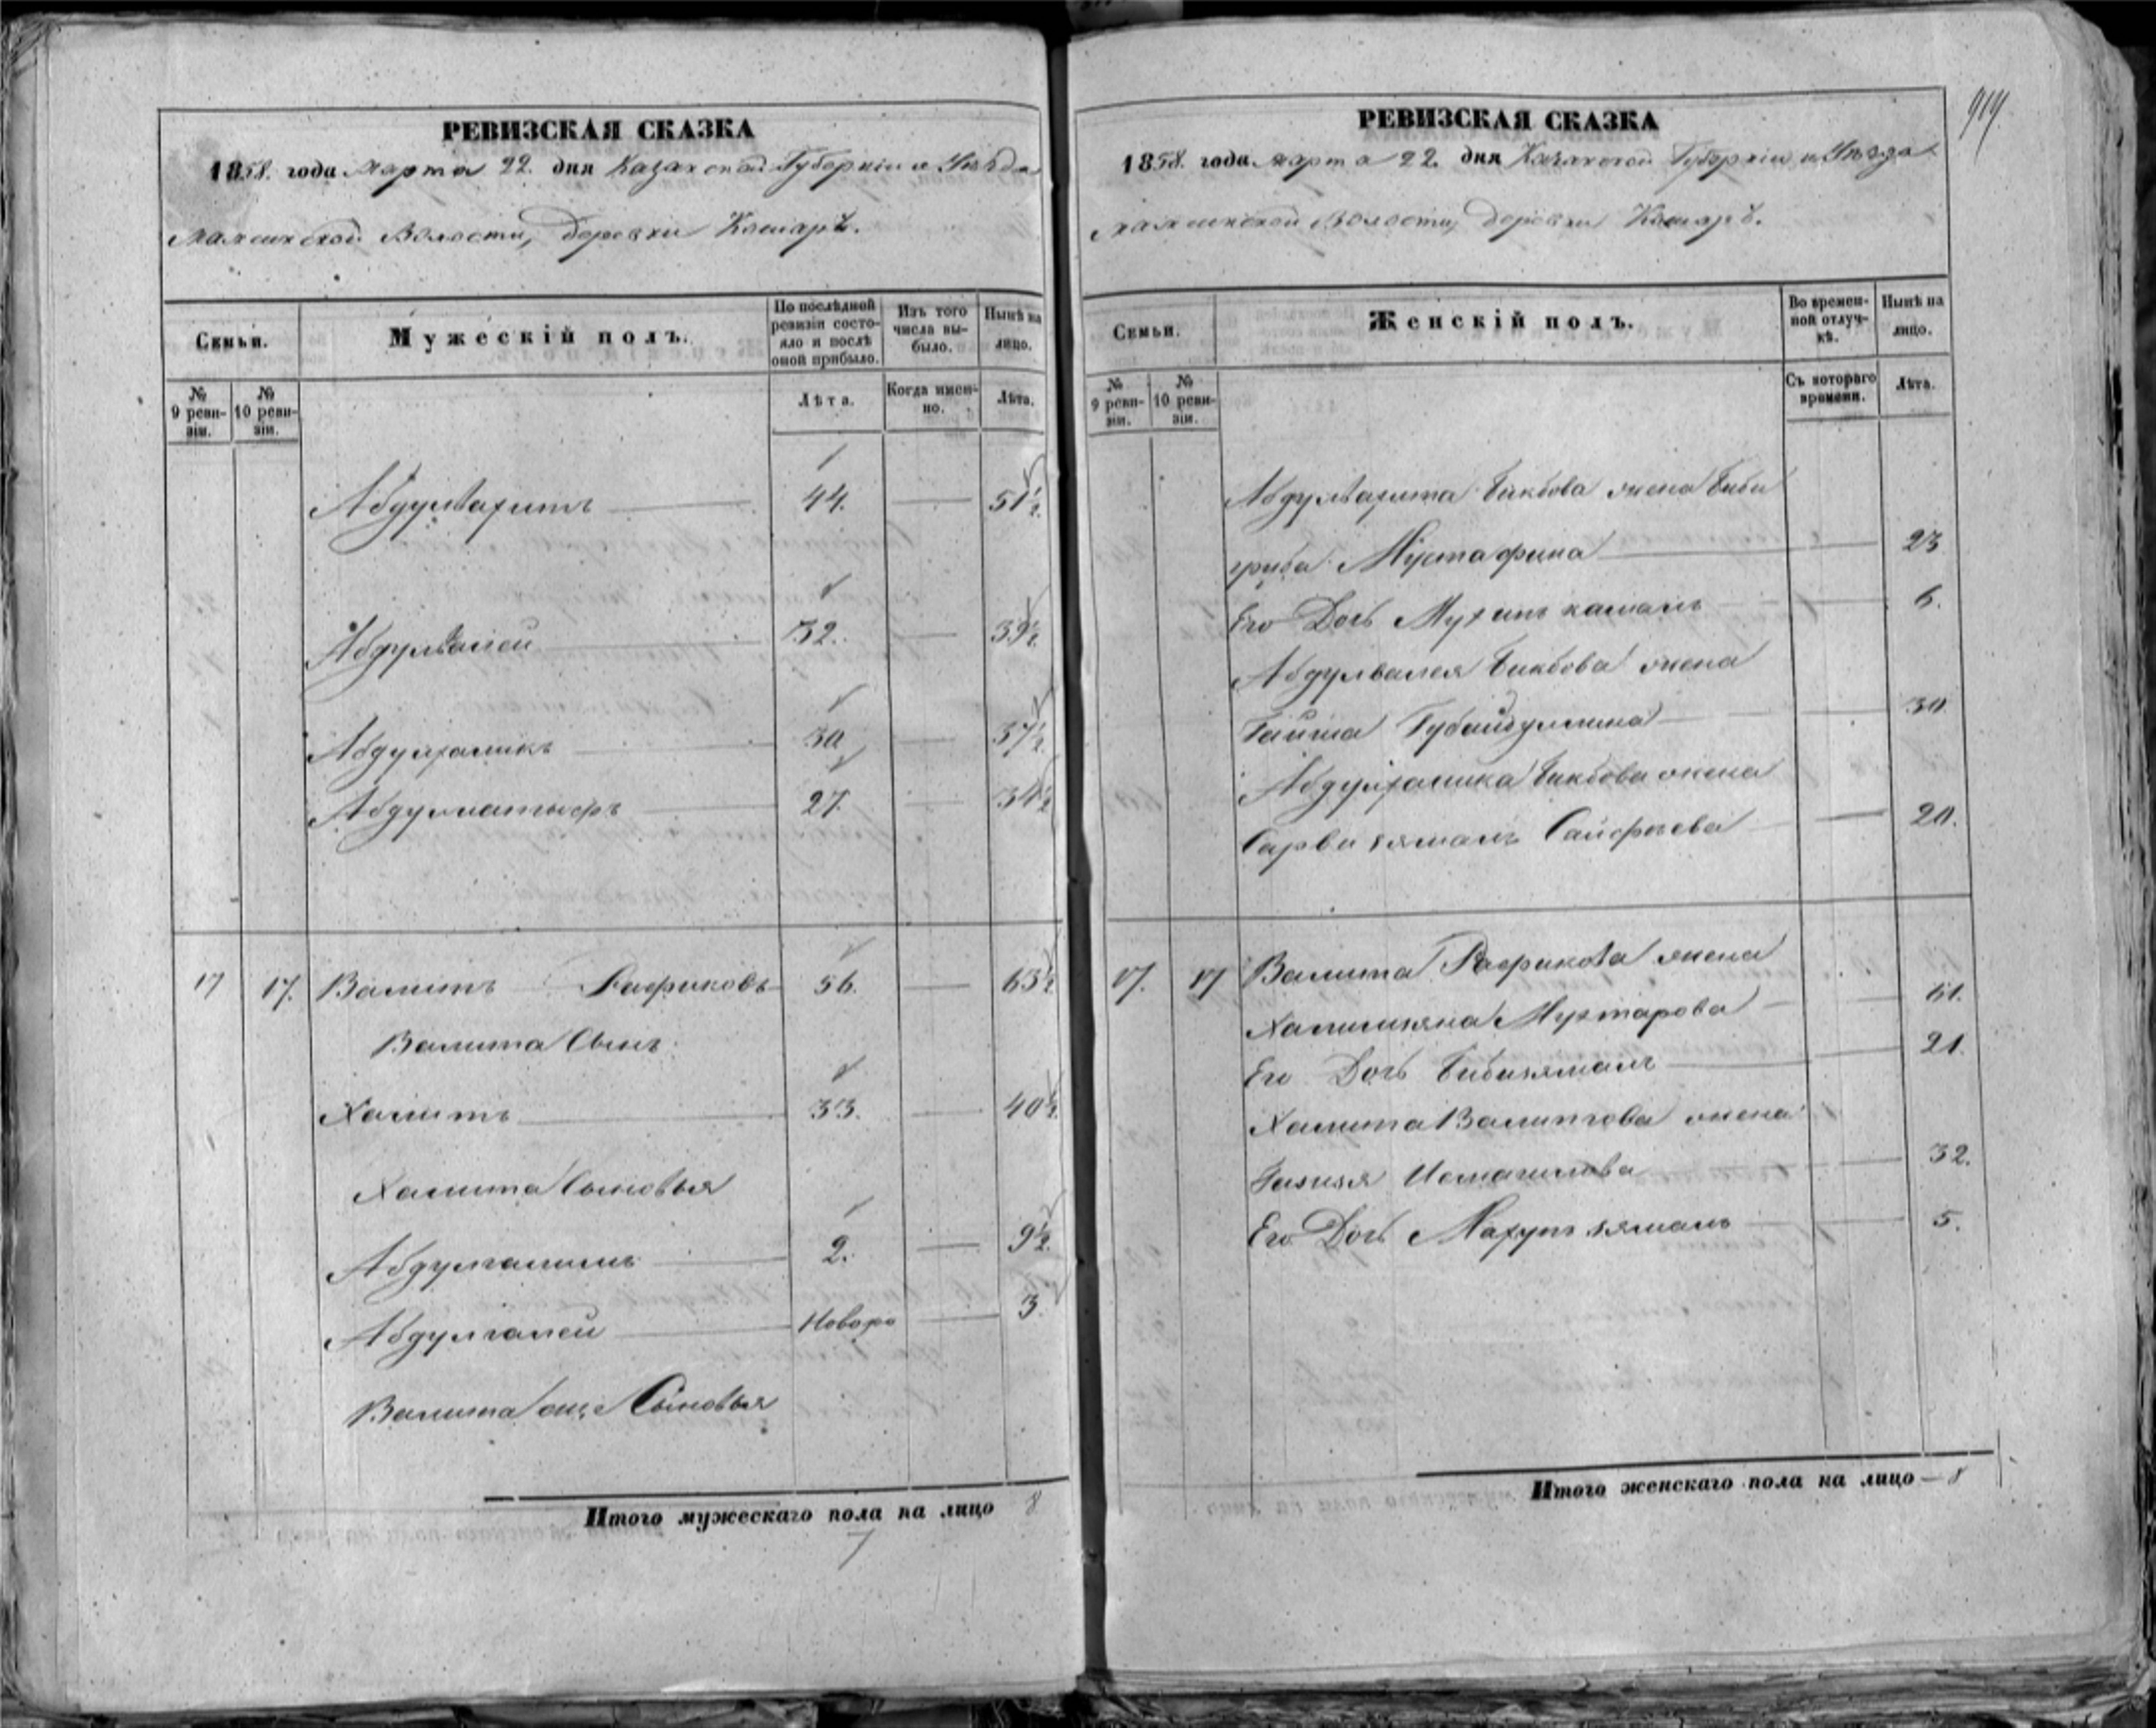 919
РЕВИЗСКАЯ СКАЗКА
1858. года Марта 22. дня Казанской Губерніи и Уѣзда
Мамсинской Волости, деревни Кошаръ.
Семьи.
Мужескій полъ.
По послѣдней ревизіи состояло и послѣ оной прибыло.
Изъ того числа выбыло.
Нынѣ на лицо.
№ 9 ревизіи.
№ 10 ревизіи.
Лѣта.
Когда именно.
Лѣта.
Абдулвагитъ 44. 51½
Абдулвалей 32. 39½
Абдулхаликъ 30 37½
Абдуллатыфъ 27. 34½
17 17. Валитъ Рафиковъ 56. 63½
Валита Сынъ
Халитъ 33. 40½
Халита Сыновья
Абдулгалимъ 2. 9½
Абдулгалей Новоро 3
Валита еще Сыновья
Итого мужескаго пола на лицо 8
7
РЕВИЗСКАЯ СКАЗКА
1858. года марта 22. дня Казанской Губерніи и Уѣзда
Мамсинской Волости, деревни Кошаръ.
Семьи.
Женскій полъ.
Во временной отлучкѣ.
Нынѣ на лицо.
№ 9 ревизіи.
№ 10 ревизіи.
Съ котораго времени.
Лѣта.
Абдулвагита Бикбова жена Биби
Мустафина 23
Его Дочь камалъ 6.
Абдулвалея Бикбова жена
Губайдуллина 30
Абдулхалика Бикбова жена
Сарви Сайфіева 20.
17. 17 Валита Рафикова жена
Мухтарова 61.
Его Дочь Бибизямалъ 21.
Халита Валитова жена
Исмагилова 32.
Его Дочь Махупзямалъ 5.
Итого женскаго пола на лицо — 8